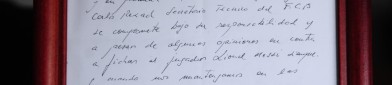 Carles Rexach Secretario Técnico del F.C.B
se compromete bajo su responsabilidad y
a pesar de algunas opiniones en contra
a fichar al jugador Lionel Messi siempre
y cuando nos mantengamos en las